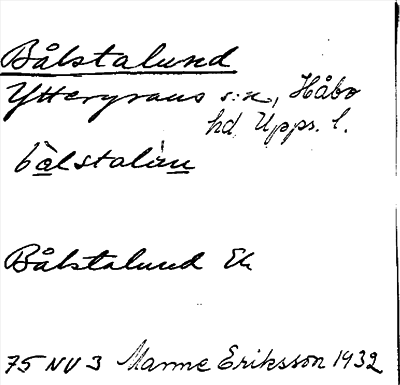 Bålstalund
Yttergrans s:n, Håbo
hd Upps. l.
bålstalùn
Bålstalund Ek
75 NV 3 Manne Eriksson 1932